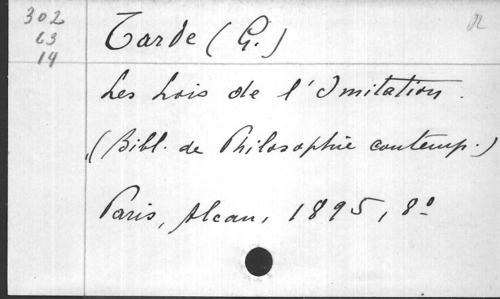 302
63
14
Tarde (G.)
Les Lois de l'Imitation.
(Bibl. de Philosophie contemp.)
Paris, Alcan, 1895, 8°